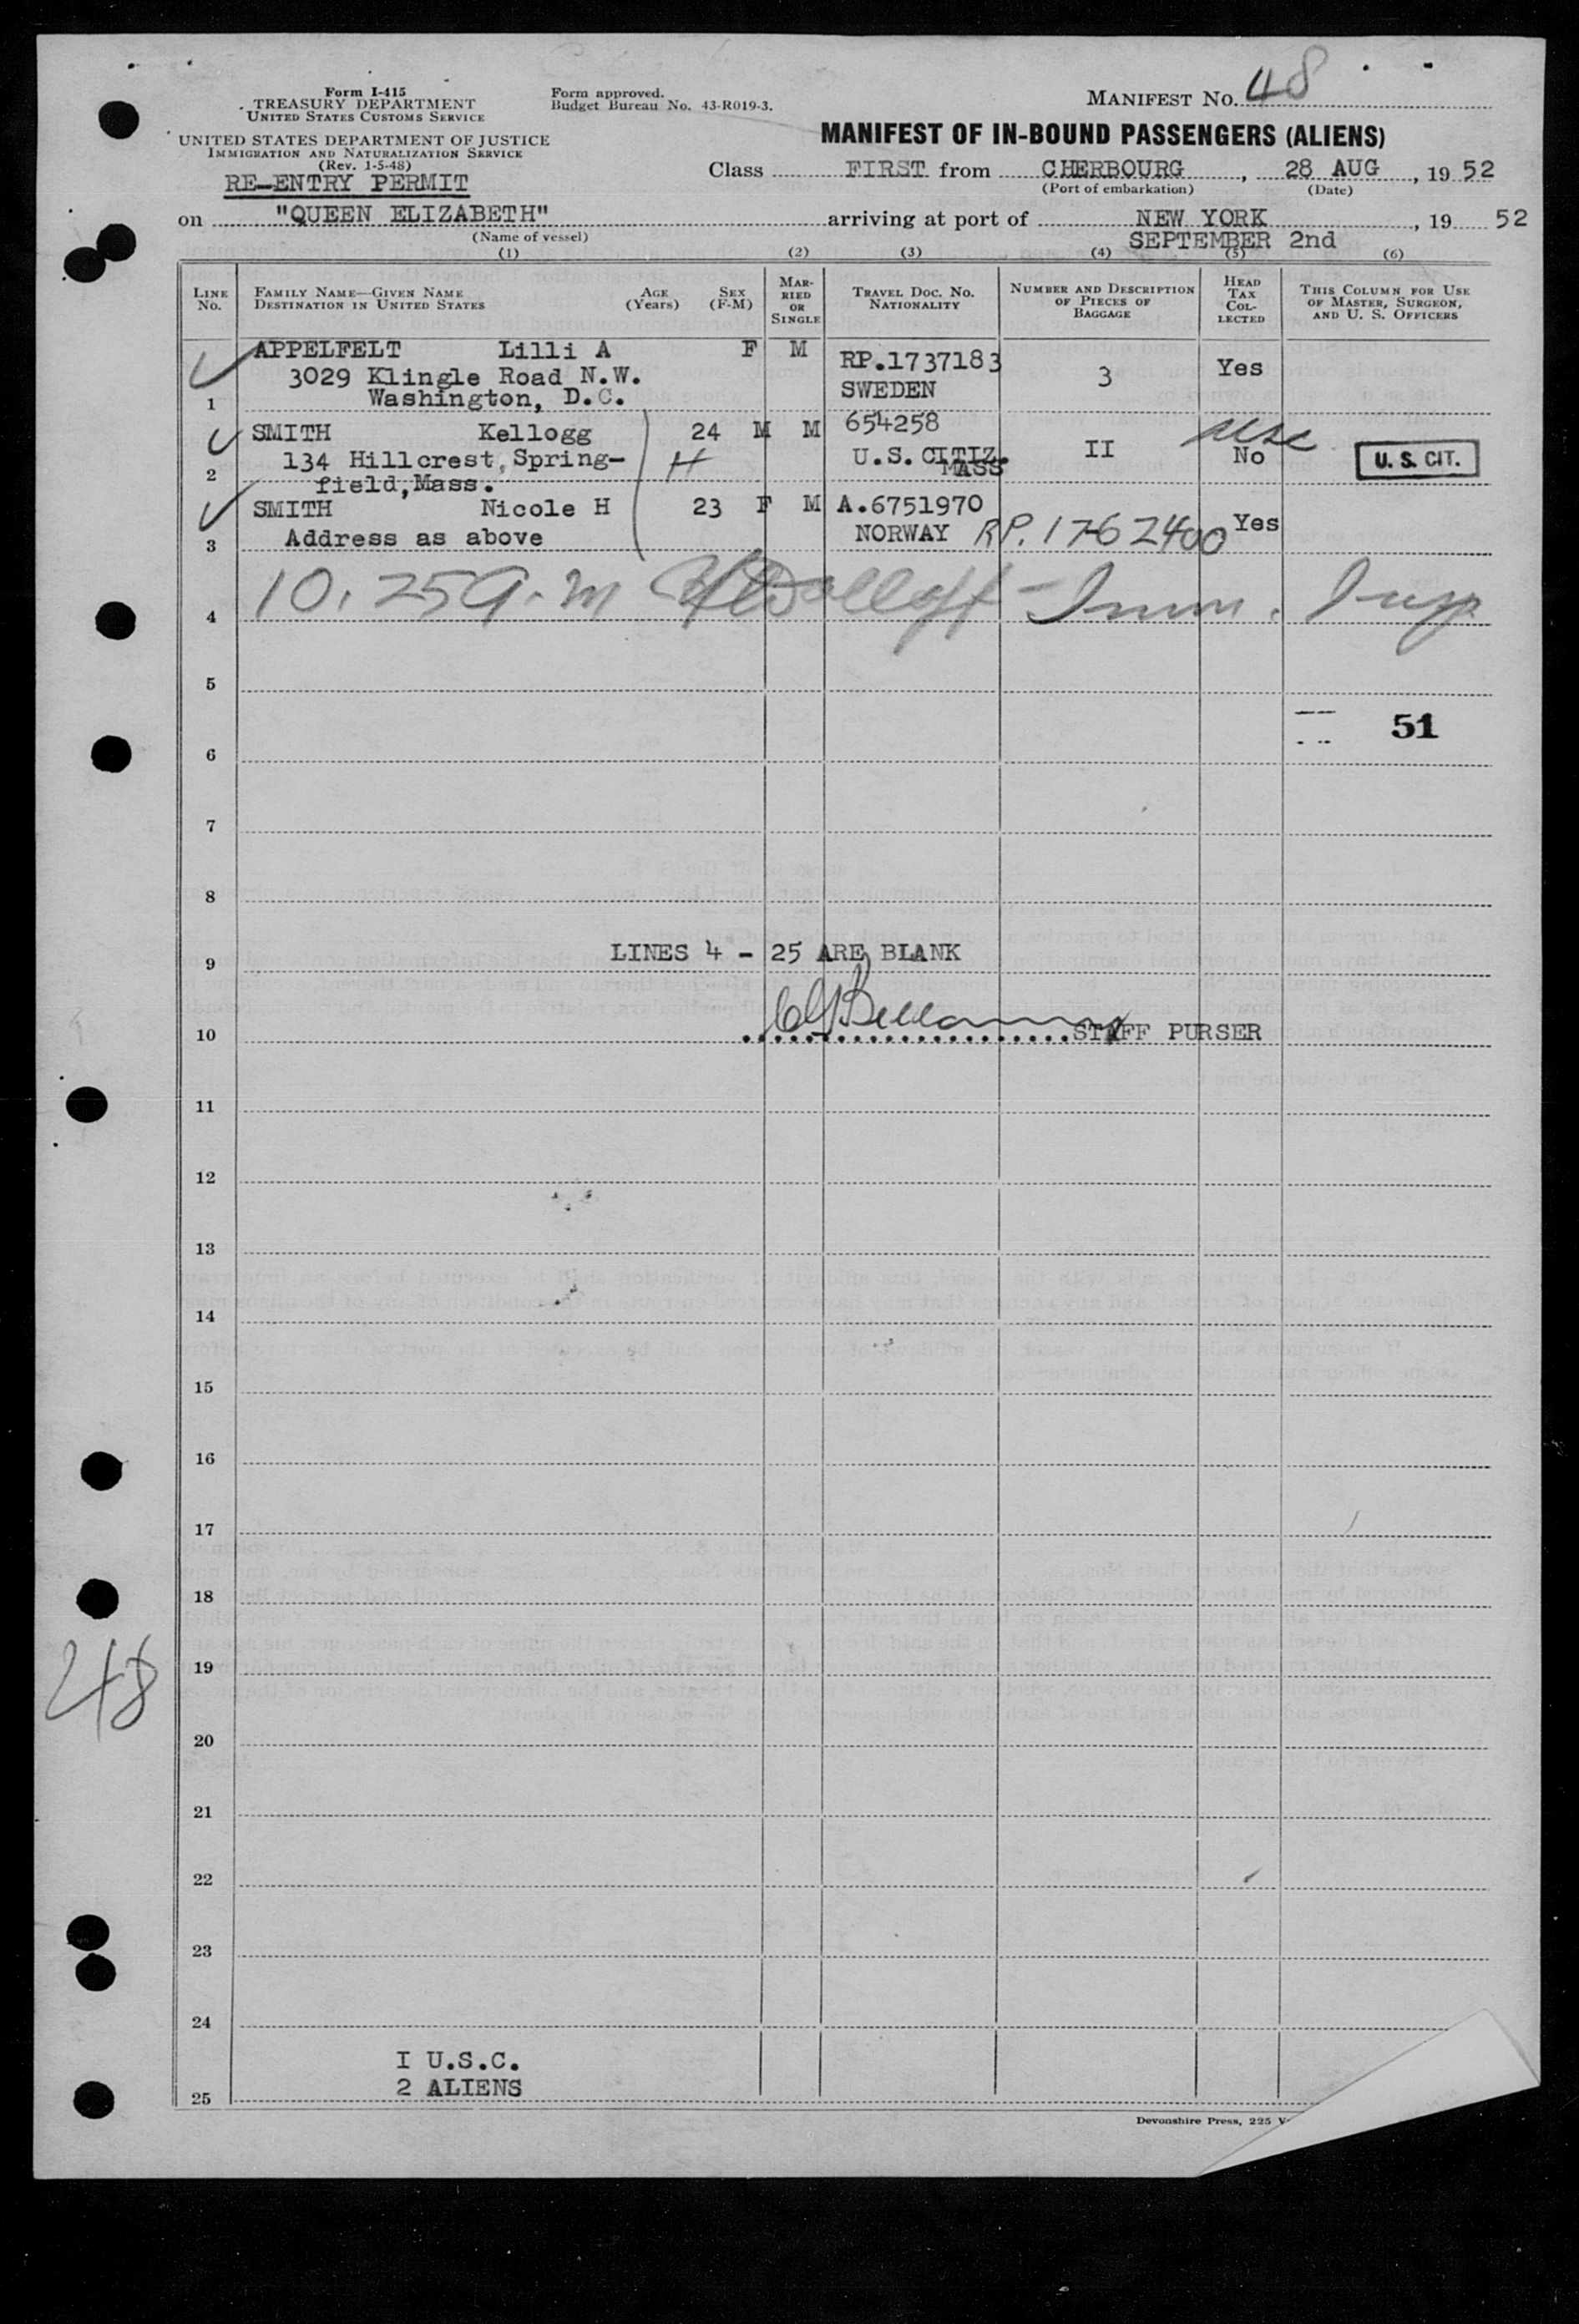 Form I-415
TREASURY DEPARTMENT
UNITED STATES CUSTOMS SERVICE
UNITED STATES DEPARTMENT OF JUSTICE
IMMIGRATION AND NATURALIZATION SERVICE
(Rev. 1-5-48)
RE-ENTRY PERMIT
Form approved.
Budget Bureau No. 43-R019-3.
MANIFEST NO. 48
MANIFEST OF IN-BOUND PASSENGERS (ALIENS)
Class FIRST from CHERBOURG, 28 AUG, 19 52
(Port of embarkation) (Date)
on "QUEEN ELIZABETH" arriving at port of NEW YORK, 19 52
(Name of vessel) SEPTEMBER 2nd
(1) (2) (3) (4) (5) (6)
LINE NO. FAMILY NAME—GIVEN NAME DESTINATION IN UNITED STATES AGE (Years) SEX (F-M) MARRIED OR SINGLE TRAVEL DOC. NO. NATIONALITY NUMBER AND DESCRIPTION OF PIECES OF BAGGAGE HEAD TAX COLLECTED THIS COLUMN FOR USE OF MASTER, SURGEON, AND U. S. OFFICERS
APPELFELT Lilli A F M RP.1737183
3029 Klingle Road N.W. SWEDEN 3 Yes
1 Washington, D.C.
SMITH Kellogg 24 M M 654258
134 Hillcrest, Spring- H U.S. CITIZ. II No U. S. CIT.
2 field, Mass. MASS
SMITH Nicole H 23 F M A.6751970
3 Address as above NORWAY RP. 1762400 Yes
4 10.25 A.m Imm. Insp
5
51
6
7
8
9 LINES 4 - 25 ARE BLANK
10 STAFF PURSER
11
12
13
14
15
16
17
18
19
48
20
21
22
23
24
I U.S.C.
25 2 ALIENS
Devonshire Press, 225